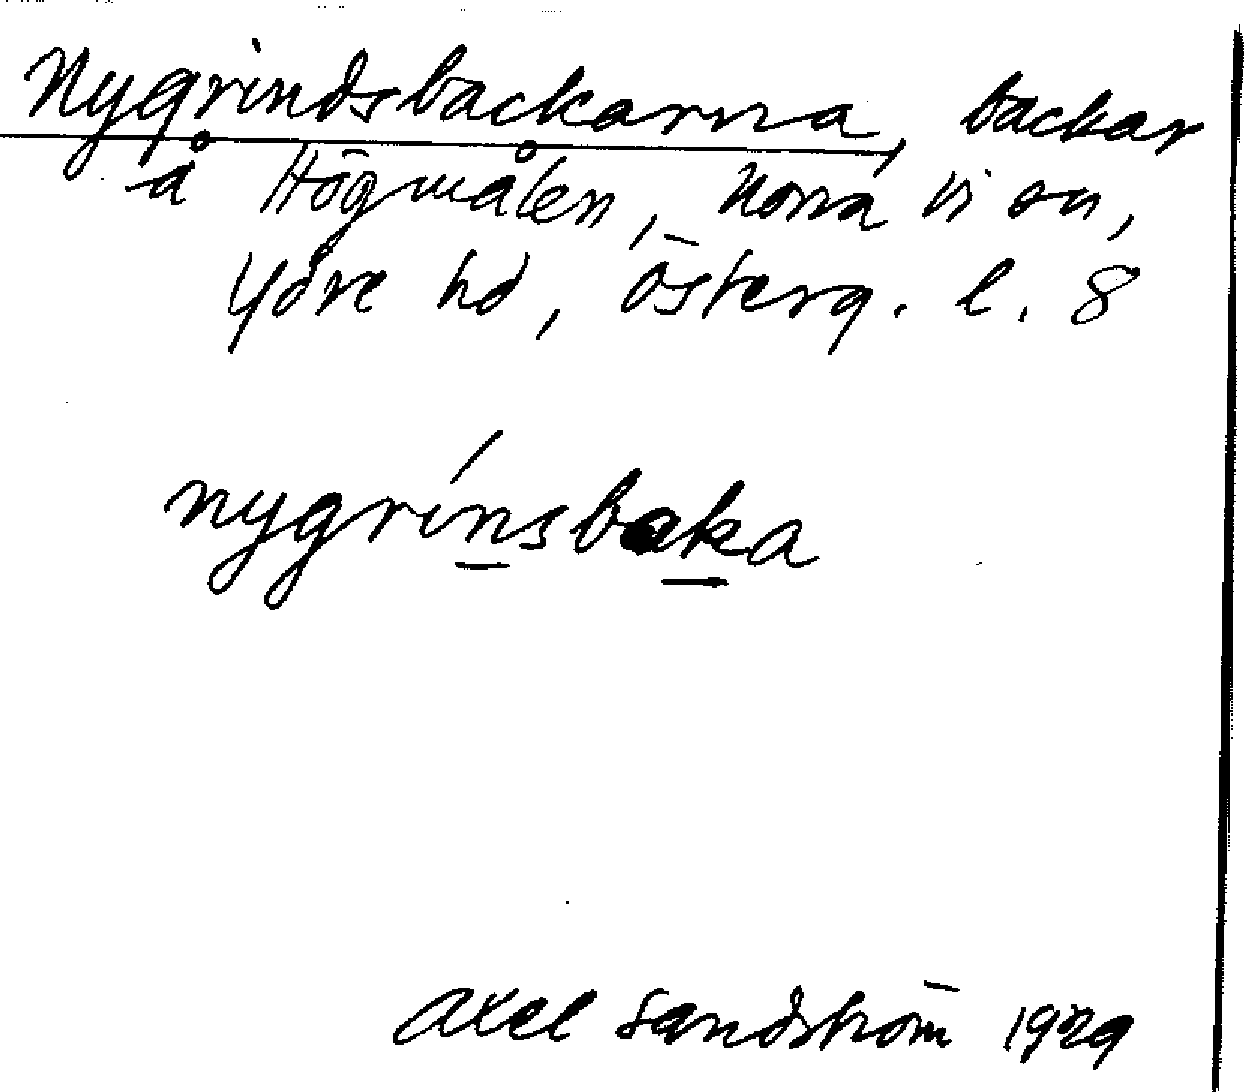 Nygrindsbackarna, backar
å Högmålen, Norra Vi sn,
Ydre hd, Österg. l. 8
nygrinsbaka
Axel Sandström 1929